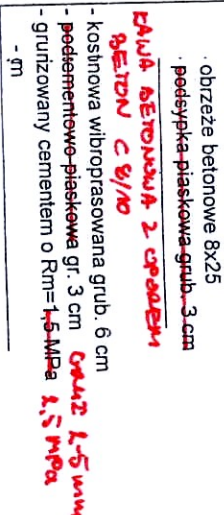 · obrzeże betonowe 8x25
· podsypka piaskowa grub. 3 cm
ŁAWA BETONOWA Z OPOREM
BETON C 8/10
- kostnowa wibroprasowana grub. 6 cm
- podsementowo-piaskowa gr. 3 cm
2-5 mm
- grunizowany cementem o Rm=1,5 MPa 2,5 MPa